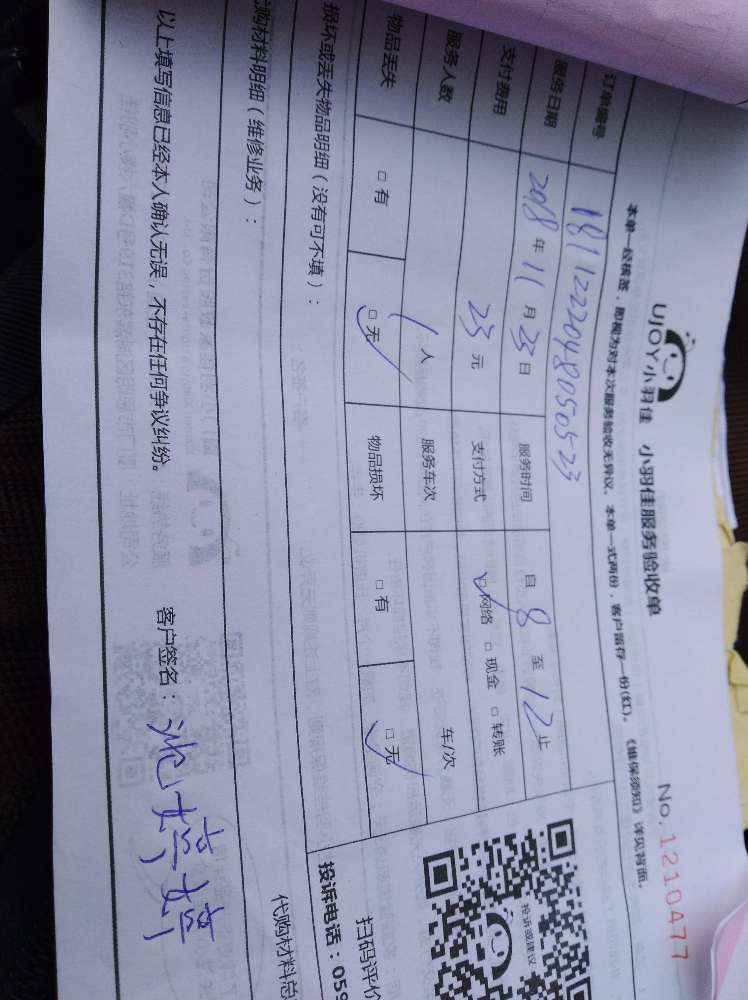 UJOY小羽佳 小羽佳服务验收单 No.1210477
本单一经核签，即视为对本次服务验收无异议。本单一式两份，客户留存一份(红)。《维保须知》详见背面。
订单编号 181122204805050523
服务日期 2018年11月23日 服务时间 自8至12止
支付费用 25元 支付方式 □网络 □现金 □转账
服务人数 1人 服务车次 车/次
物品丢失 □有 □无 物品损坏 □有 □无
投诉或建议
扫码评价
投诉电话：059
损坏或丢失物品明细（没有可不填）：
购材料明细（维修业务）： 代购材料总
以上填写信息已经本人确认无误，不存在任何争议纠纷。 客户签名：婷婷